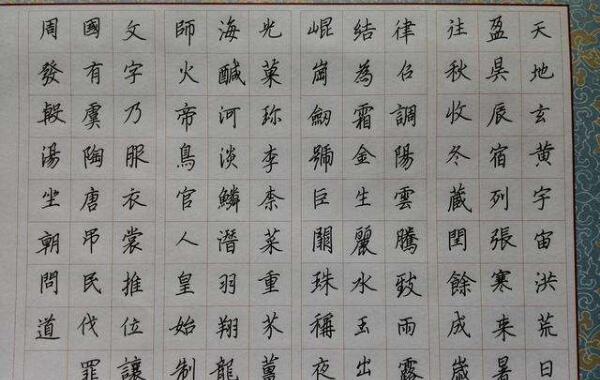 天地玄黃宇宙洪荒日
盈昃辰宿列張寒来暑
往秋收冬藏閏餘成歲
律吕調陽雲騰致雨露
結為霜金生麗水玉出
崐崗劒號巨闕珠稱夜
光菓珍李柰菜重芥薑
海醎河淡鱗潛羽翔龍
師火帝鳥官人皇始制
文字乃服衣裳推位讓
國有虞陶唐吊民伐罪
周發殷湯坐朝問道